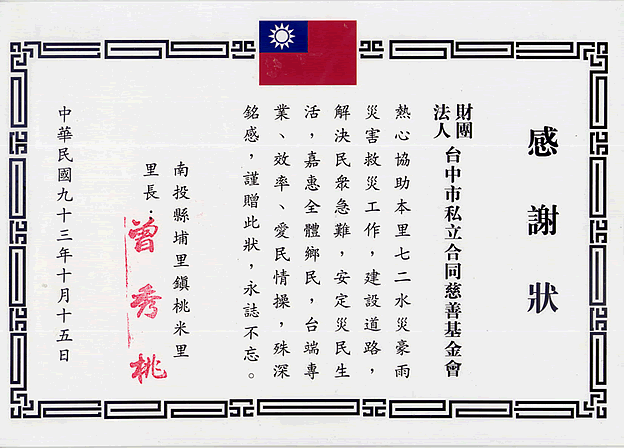 感謝狀
財團法人台中市私立合同慈善基金會
熱心協助本里七二水災豪雨
災害救災工作，建設道路，
解決民眾急難，安定災民生
活，嘉惠全體鄉民，台端專
業、效率、愛民情操，殊深
銘感，謹贈此狀，永誌不忘。
南投縣埔里鎮桃米里
里長：曾秀桃
中華民國九十三年十月十五日